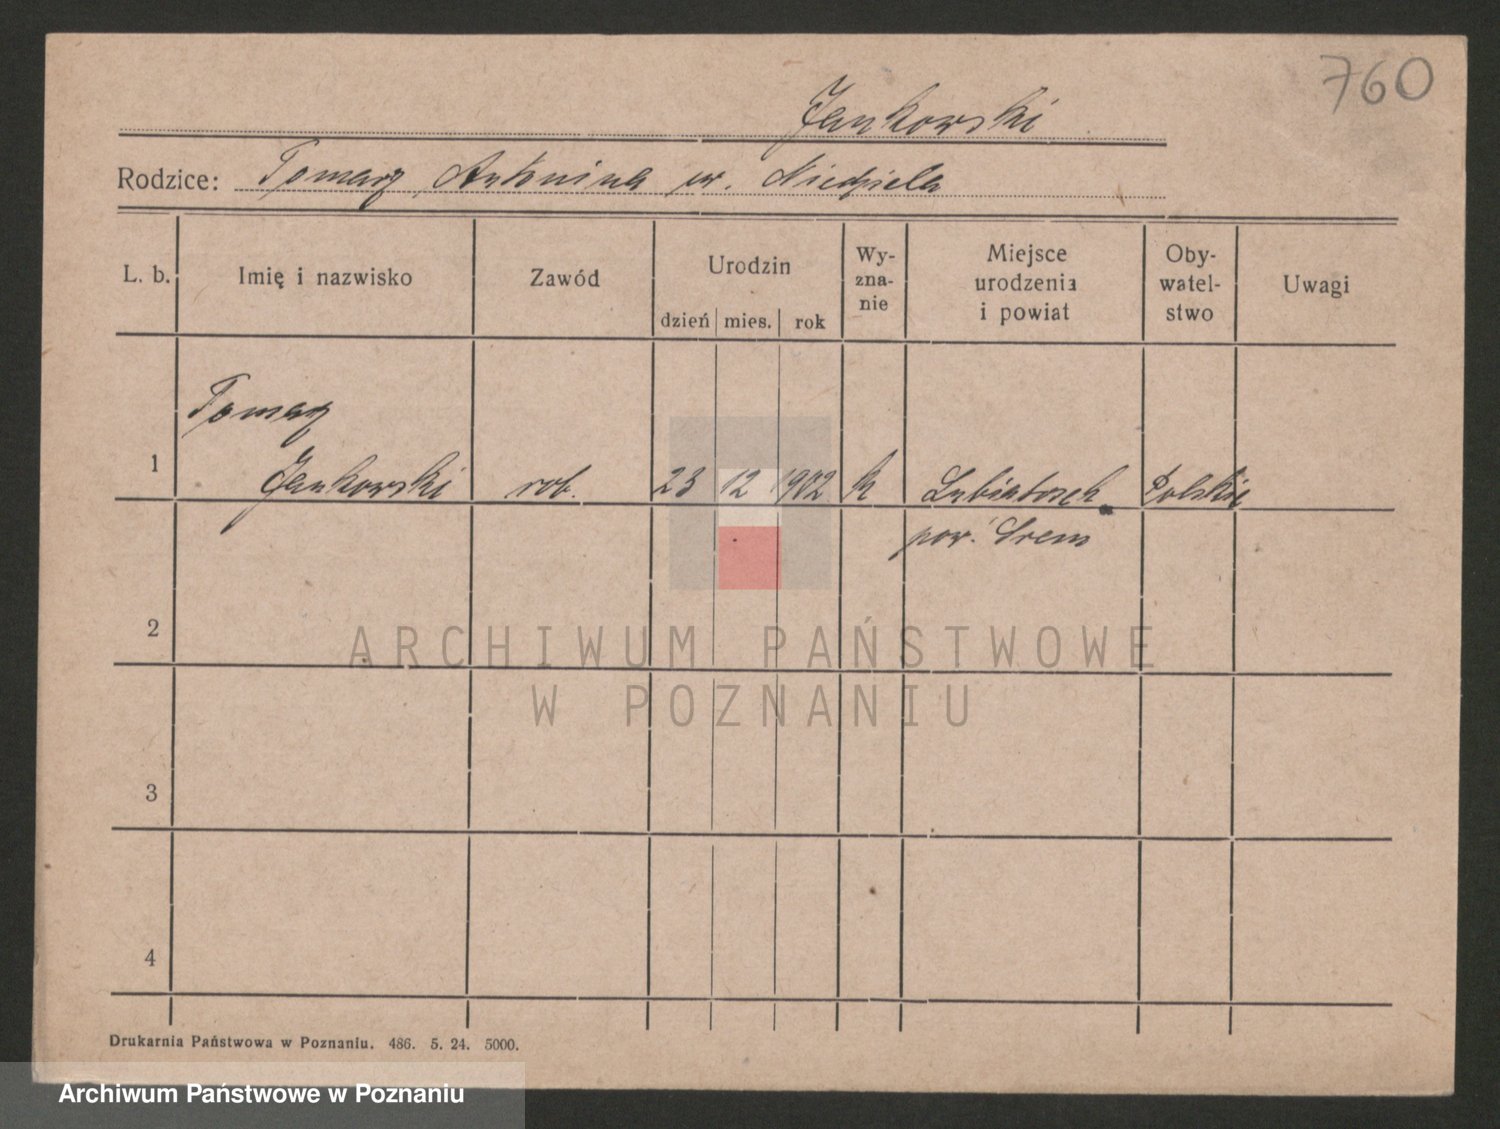 760
Jankowski
Rodzice: Tomasz, Antonina ur. Niedziela
L. b. Imię i nazwisko Zawód Urodzin dzień mies. rok Wy-zna-nie Miejsce urodzenia i powiat Oby-watel-stwo Uwagi
Tomasz
1 Jankowski rob. 23 12 1902 k Lubiatówek Polskie
pow. Śrem
2
3
4
ARCHIWUM PAŃSTWOWE
W POZNANIU
Drukarnia Państwowa w Poznaniu. 486. 5. 24. 5000.
Archiwum Państwowe w Poznaniu